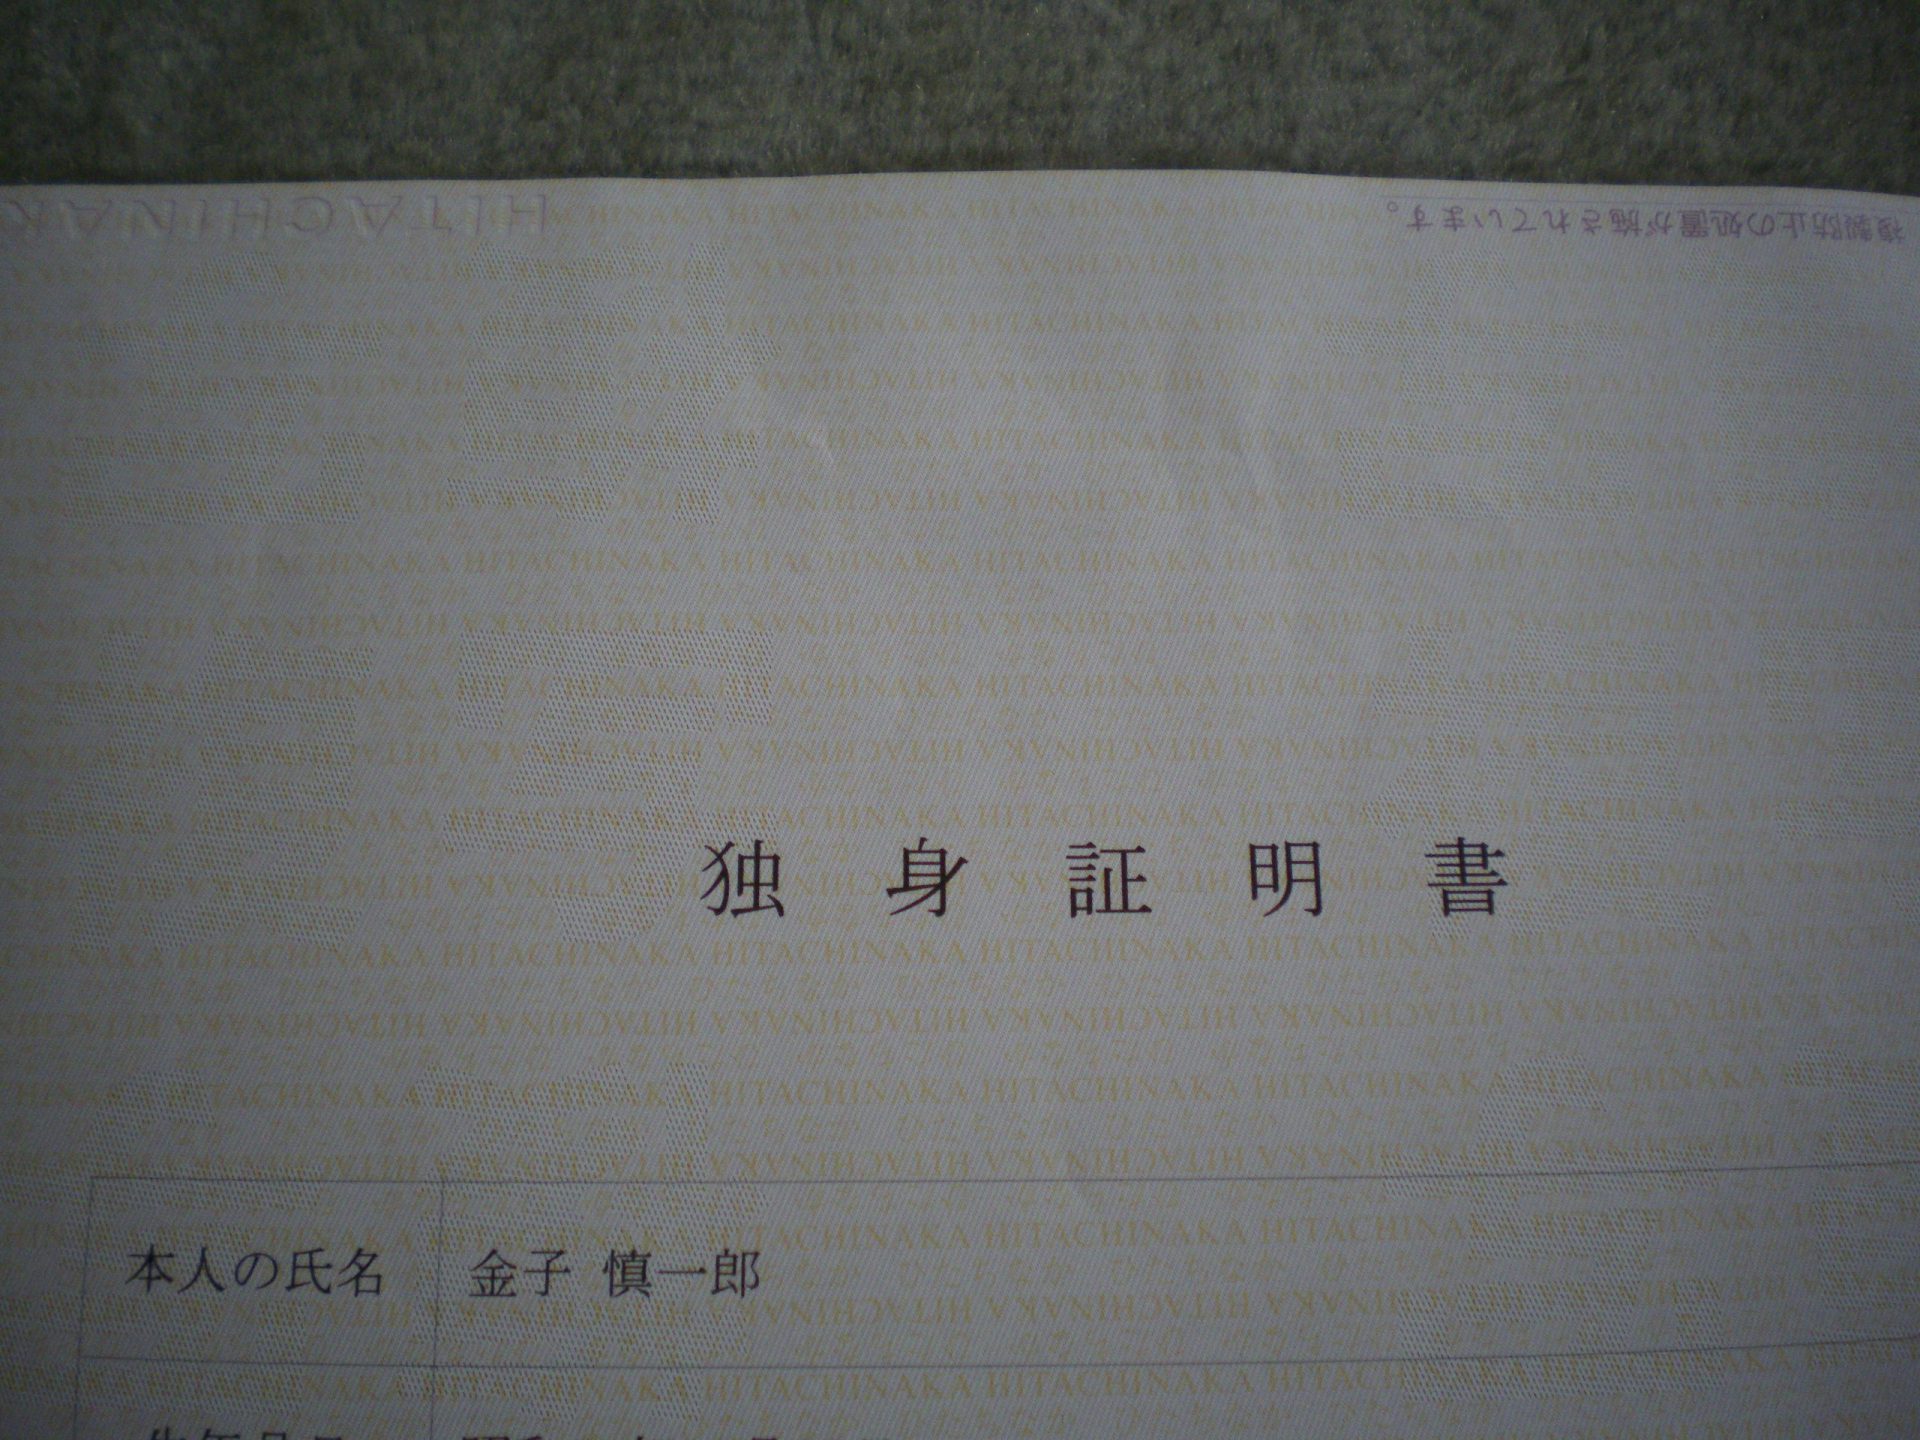 HITACHINAKA
複製防止の処置が施されています。
独身証明書
本人の氏名 金子 慎一郎